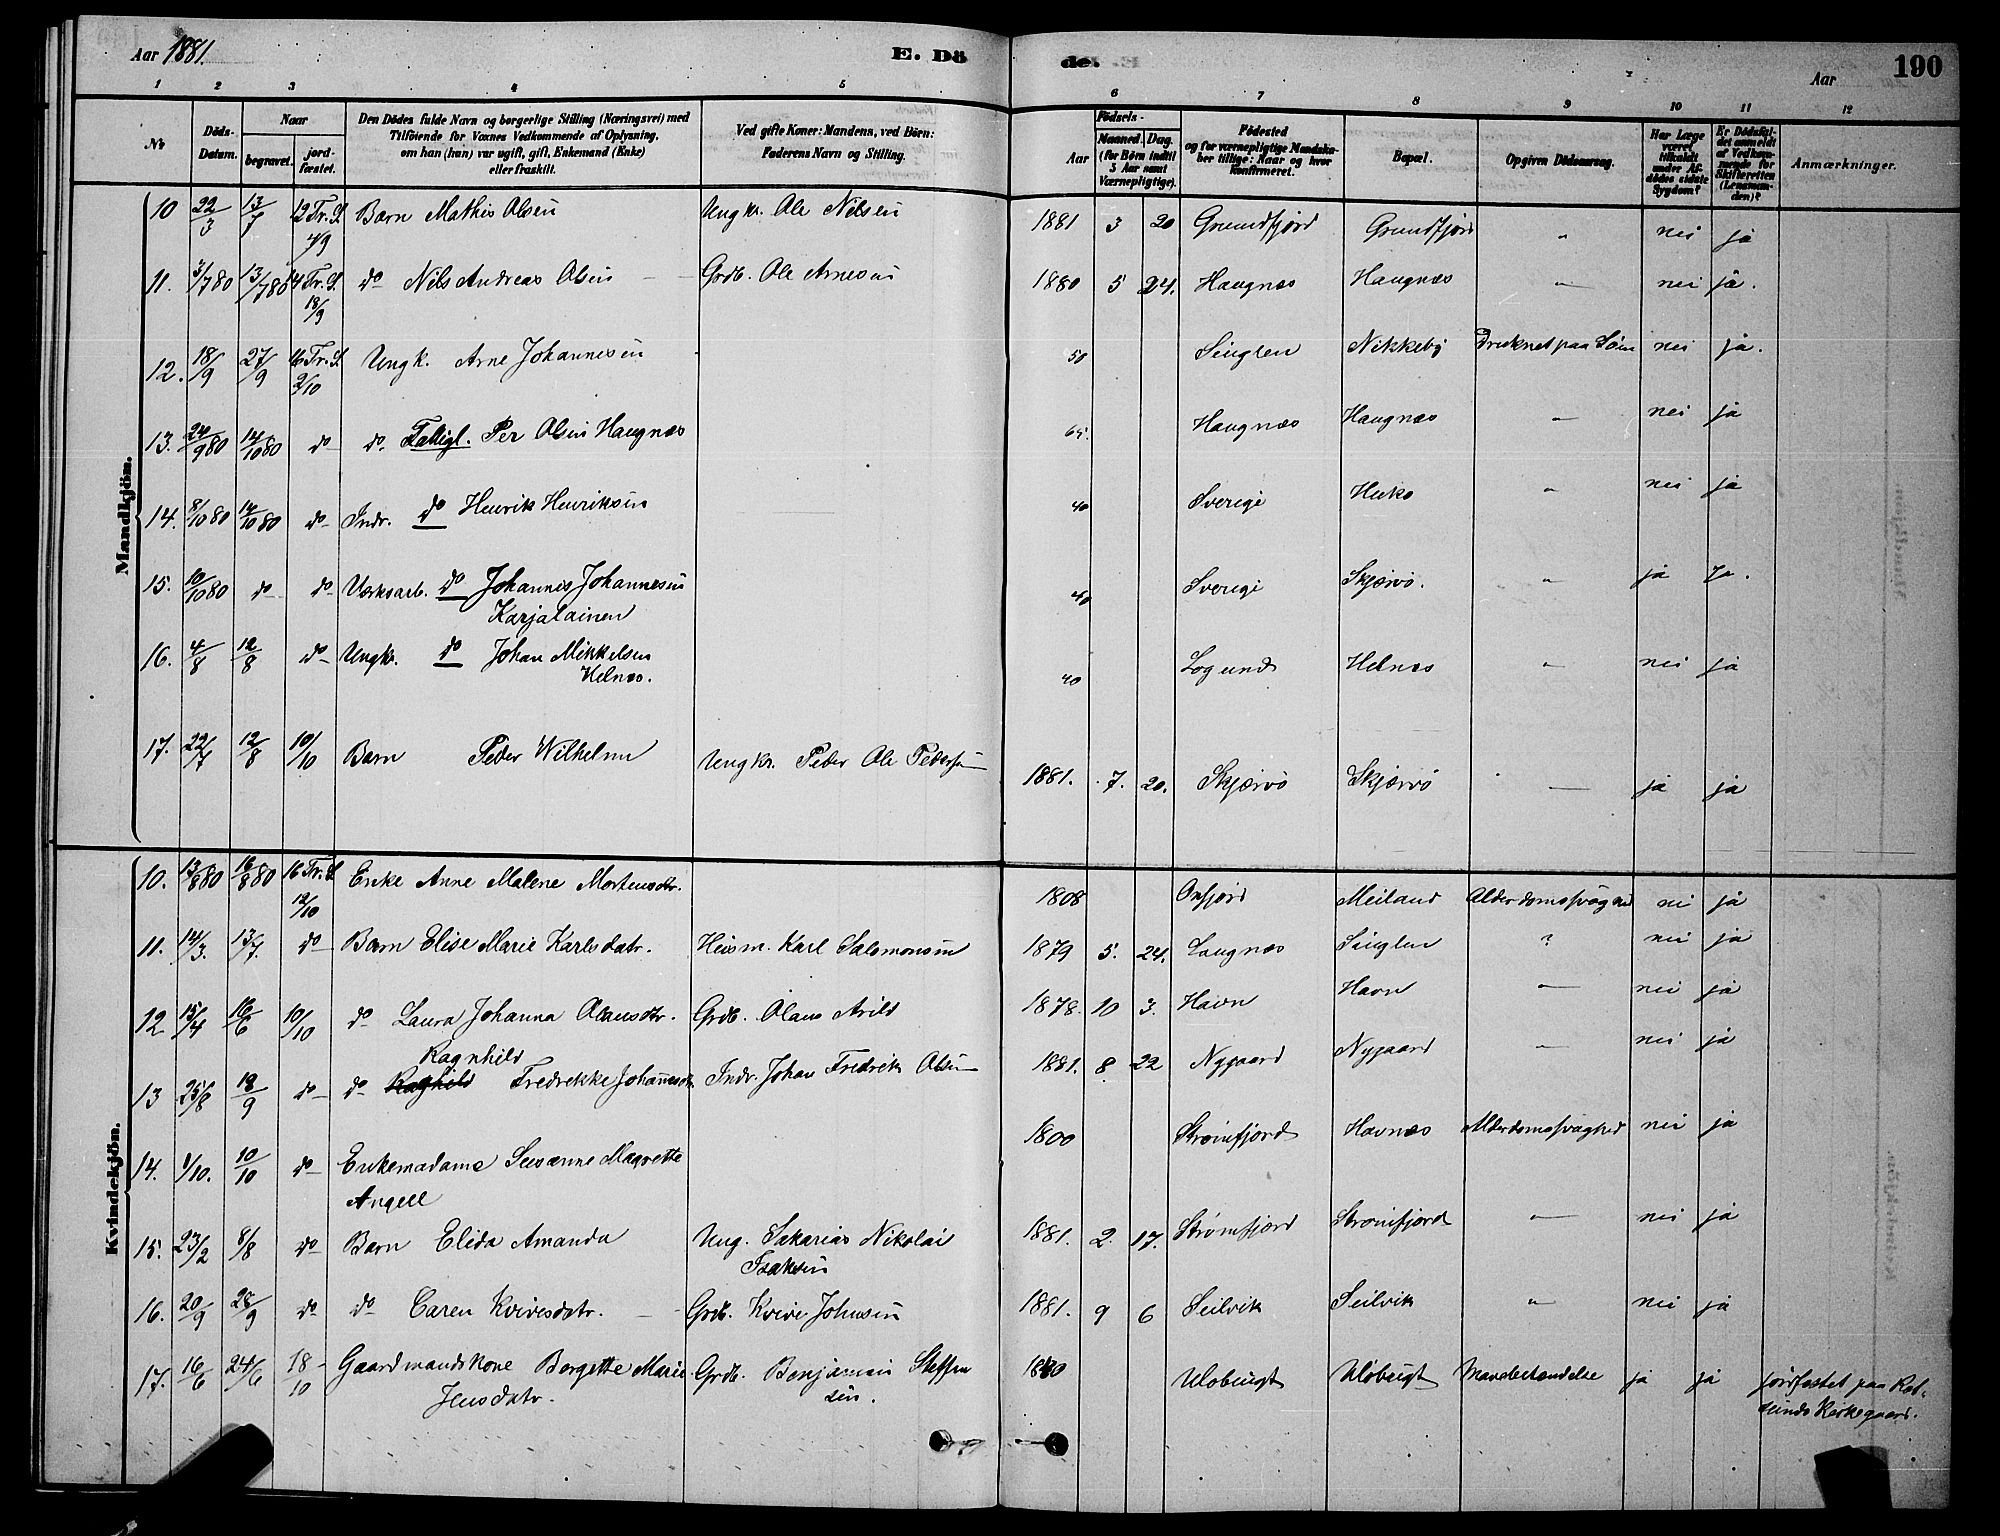 Aar 1881. E. Dö de. Aar 190
1 2 3 4 5 6 7 8 9 10 11 12
No Döds-Datum. Naar begravet. jordfæstet. Den Dödes fulde Navn og borgerlige Stilling (Næringsvei) med Tilföiende for Voxnes Vedkommende af Oplysning, om han (hun) var ugift, gift, Enkemand (Enke) eller fraskilt. Ved gifte Koner: Mandens, ved Börn: Faderens Navn og Stilling. Födsels- Aar Maaned. Dag. (for Börn indtil 5 Aar samt Værnepligtige). Födested og for værnepligtige Mandskaber tillige: Naar og hvor konfirmeret. Bopæl. Opgiven Dödsaarsag. Har Læge været tilkaldt under Afdödes sidste Sygdom? Er Dödsfaldet anmeldt af Vedkommende for Skifteretten (Lensmanden)? Anmærkninger.
Mandkjön.
10 22/3 13/7 12 Tr. S. 4/9 Barn Mathis Olsen Ungkr. Ole Nilsen 1881 3 20 Grundfjord Grundfjord " nei ja
11. 3/7 80 13/7 80 14 Tr. S. 18/9 do Nils Andreas Olsen Grdb. Ole Arnesen 1880 5 24. Haugnæs Haugnæs — nei ja.
12. 18/9 27/9 16 Tr. S. 2/10 Ungk. Arne Johannesen 50 Singlen Nikkeby Druknet paa Söen nei ja.
13. 24/9 80 14/10 80 do do. Fattigl. Per Olsen Haugnæs 65. Haugnæs Haugnæs — nei ja
14. 8/10 80 14/10 80 do Indr. do Henrik Henriksen 40 Sverige " nei ja
15. 10/10 80 do do Værksarb. do Johannes Johannesen
Karjalainen 40 Sverige Skjærvö. " ja Ja.
16. 4/8 12/8 do Ungkr. do Johan Mikkelsen
Helnæs. 40 Logund Helnæs " nei ja
17. 22/7 12/8 10/10 Barn Peder Wilhelm Ungkr. Peder Ole Pedersen 1881. 7. 20. Skjærvö Skjærvö — ja ja
Kvindekjön.
10. 13/8 80 16/8 80 16 Tr. S. 12/10 Enke Anne Malene Mortensdtr. 1808 Oxfjord Meiland Alderdomssvaghed nei ja
11. 14/3. 13/7. do Barn Elise Marie Karlsdatr. Husm. Karl Salomonsen 1879 5. 24. Laugnæs Singlen ? nei ja
12 15/4 16/6 10/10 do Laura Johanna Olausdtr. Grdb. Olaus Arild 1878. 10 3. Havn Havn — nei ja
Ragnhild
13 25/8 18/9 do do Raghild Fredrekke Johannesdtr Indr. Johan Fredrik Olsen 1881. 8 22 Nygaard Nygaard — nei ja
14. 1/10. 10/10 do Enkemadame Susanne Magrette
Angell 1800 Strømfjord Havnæs Alderdomssvaghed nei ja
15. 23/2 8/8 do Barn Elida Amanda Ung. Sakarias Nikolai
Isaksen 1881. 2. 17. Strømfjord Strømfjord — nei ja
16. 20/9 28/9 do do Caren Kvivesdatr. Grdb. Kvive Johnsen 1881. 9 6 Seilvik Seilvik " nei ja
17. 16/6 24/6 18/10 Gaardmandskone Borgette Marie Grdb. Benjamin Steffen
Jensdatr. sen. Uløbugt Uløbugt Mavebetændelse ja ja jordfæstet paa Rot-
sunds Kirkegaard.